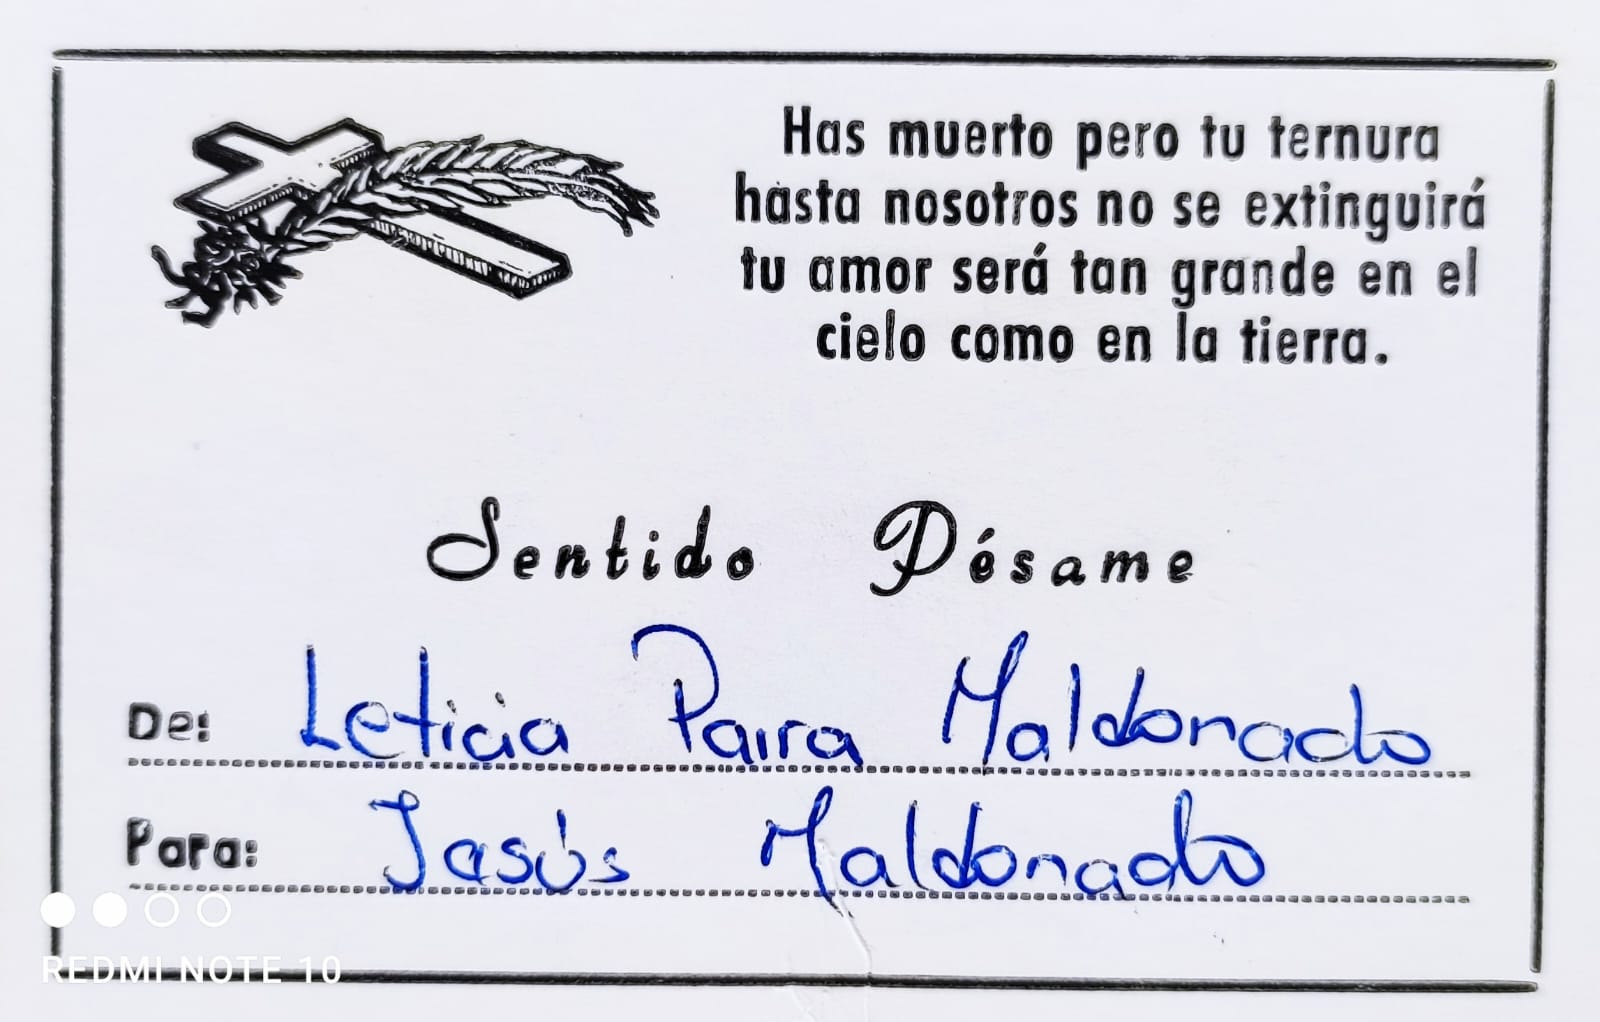 Has muerto pero tu ternura
hasta nosotros no se extinguirá
tu amor será tan grande en el
cielo como en la tierra.
Sentido Pésame
De: Leticia Parra Maldonado
Para: Jesús Maldonado
REDMI NOTE 10